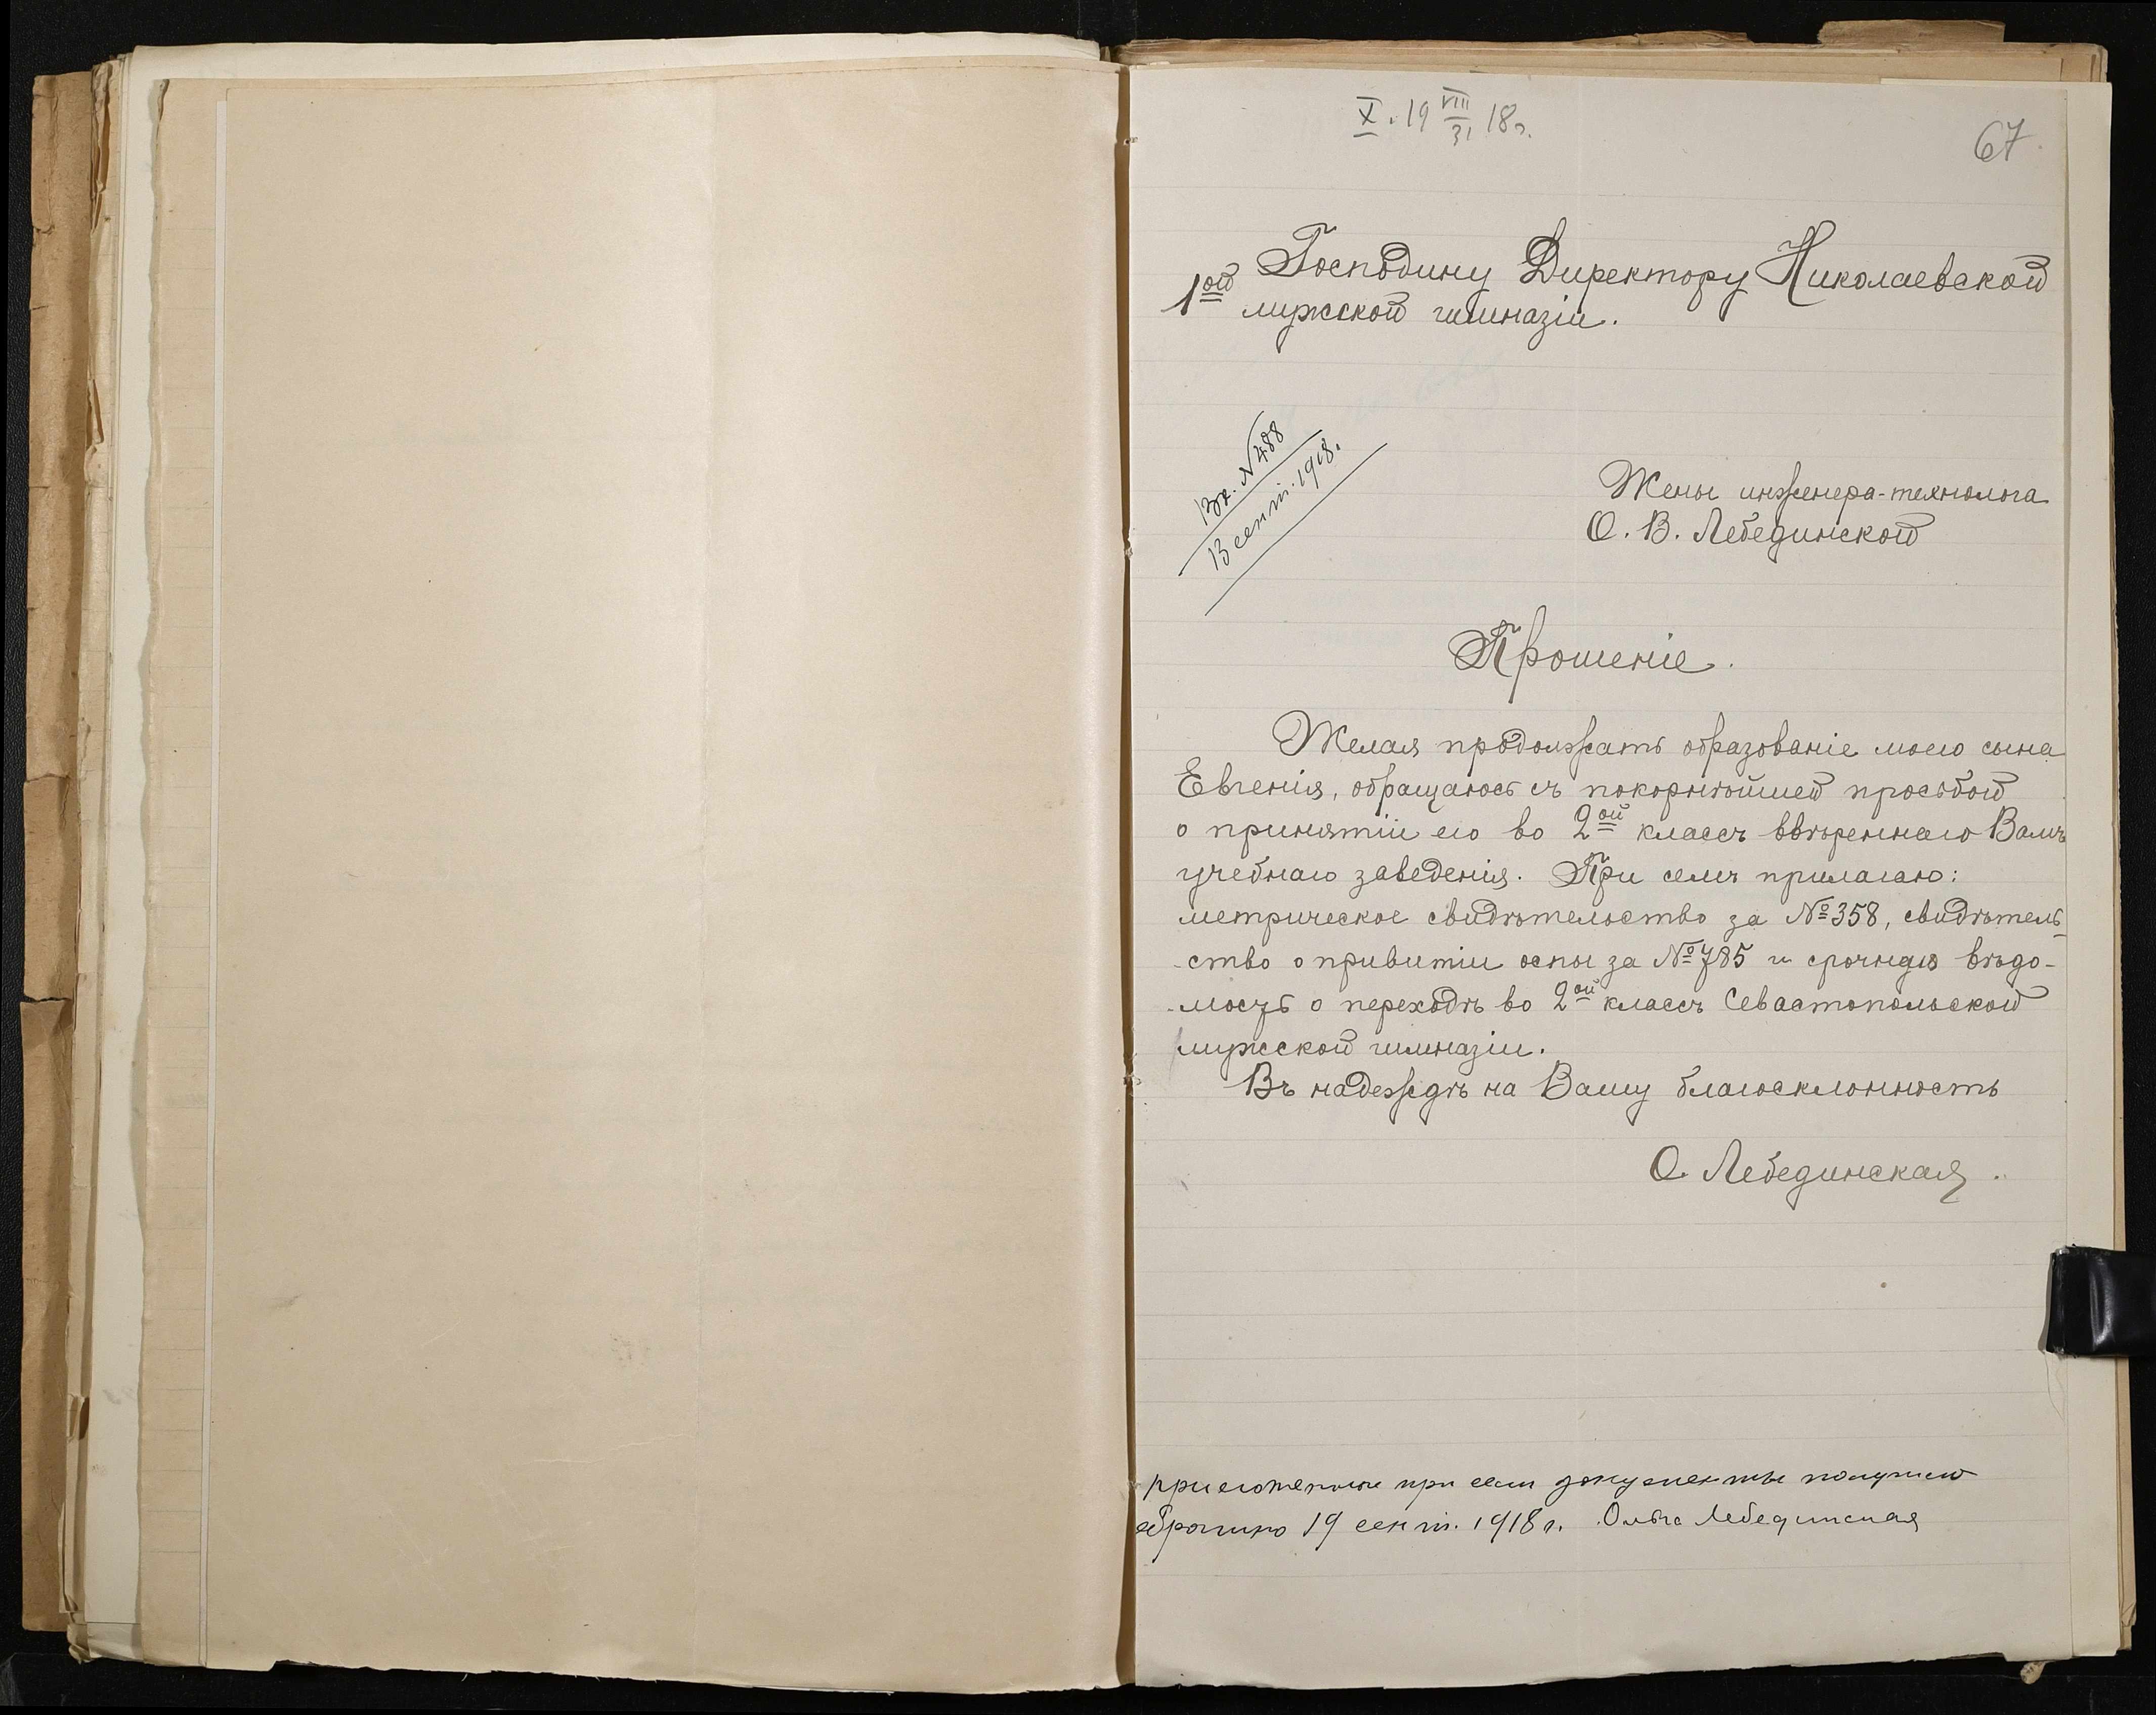 X. 19 VIII/31 18г.
67
Господину Директору Николаевской
1ой мужской гимназіи.
Вх. № 488
13 сент. 1918.
Жены инженера-технолога
О. В. Лебединской
Прошеніе.
Желая продолжать образованіе моего сына
Евгенія, обращаюсь съ покорнѣйшей просьбой
о принятіи его во 2ой классъ ввѣреннаго Вамъ
учебнаго заведенія. При семъ прилагаю:
метрическое свидѣтельство за №358, свидѣтель-
-ство о привитіи оспы за №785 и срочная вѣдо-
-мость о переходѣ во 2ой классъ Севастопольской
мужской гимназіи.
Въ надеждѣ на Вашу благосклонность
О. Лебединская.
приложенные при сем документы получила
обратно 19 сент. 1918 г. Ольга Лебединская